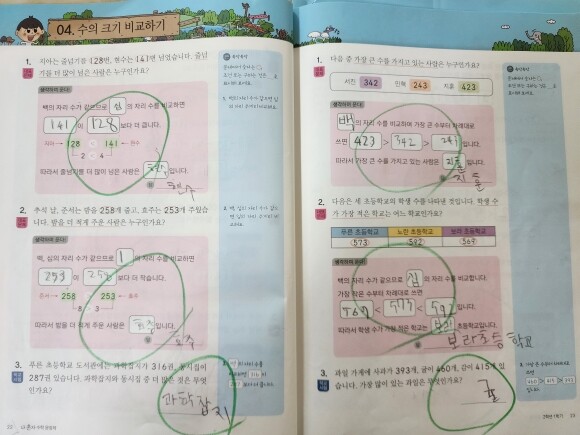 04. 수의 크기 비교하기
1. 지아는 줄넘기를 128번, 현수는 141번 넘었습니다. 줄넘
기를 더 많이 넘은 사람은 누구인가요?
생각하며 푼다!
백의 자리 수가 같으므로 십 의 자리 수를 비교하면
141 이 128 보다 더 큽니다.
지아→ 128 < 141 ←현수
2 < 4
따라서 줄넘기를 더 많이 넘은 사람은 현수 입니다.
현수
2. 추석 날, 준서는 밤을 258개 줍고, 효주는 253개 주웠습
니다. 밤을 더 적게 주운 사람은 누구인가요?
생각하며 푼다!
백, 십의 자리 수가 같으므로 1 의 자리 수를 비교하면
253 이 258 보다 더 작습니다.
준서→ 258 > 253 ←효주
8 > 3
따라서 밤을 더 적게 주운 사람은 효주 입니다.
효주
3. 푸른 초등학교 도서관에는 과학잡지가 316권, 동시집이
287권 있습니다. 과학잡지와 동시집 중 더 많은 것은 무엇
인가요?
과학잡지
1. 다음 중 가장 큰 수를 가지고 있는 사람은 누구인가요?
서진 342 민혁 243 지율 423
생각하며 푼다!
백 의 자리 수를 비교하여 가장 큰 수부터 차례대로
쓰면 423 > 342 > 243 입니다.
따라서 가장 큰 수를 가지고 있는 사람은 지율 입니다.
지율
2. 다음은 세 초등학교의 학생 수를 나타낸 것입니다. 학생 수
가 가장 적은 학교는 어느 학교인가요?
푸른 초등학교 노란 초등학교 보라 초등학교
573 592 567
생각하며 푼다!
백의 자리 수가 같으므로 십 의 자리 수를 비교합니다.
가장 작은 수부터 차례대로 쓰면
567 < 573 < 592 입니다.
따라서 학생 수가 가장 적은 학교는 보라 초등학교입니다.
보라초등학교
3. 과일 가게에 사과가 393개, 귤이 460개, 감이 415개 있
습니다. 가장 많이 있는 과일은 무엇인가요?
귤